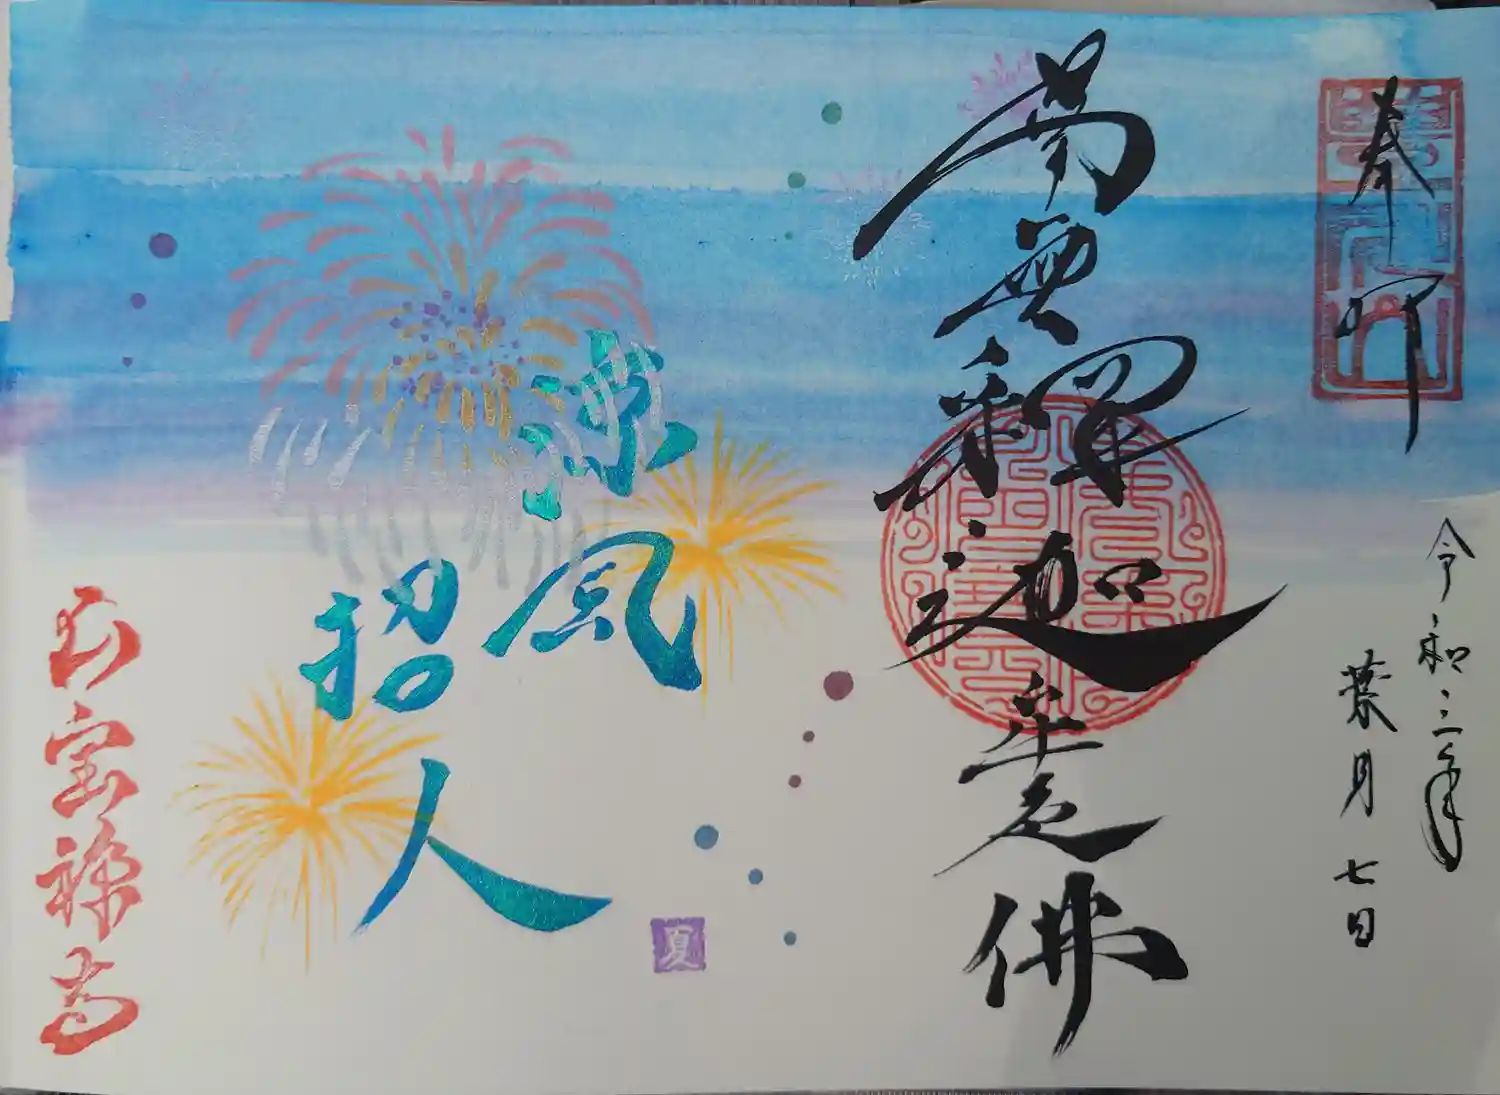 奉印
令和三年
葉月七日
南無釋迦牟尼佛
涼風
招人
夏
宝禅寺